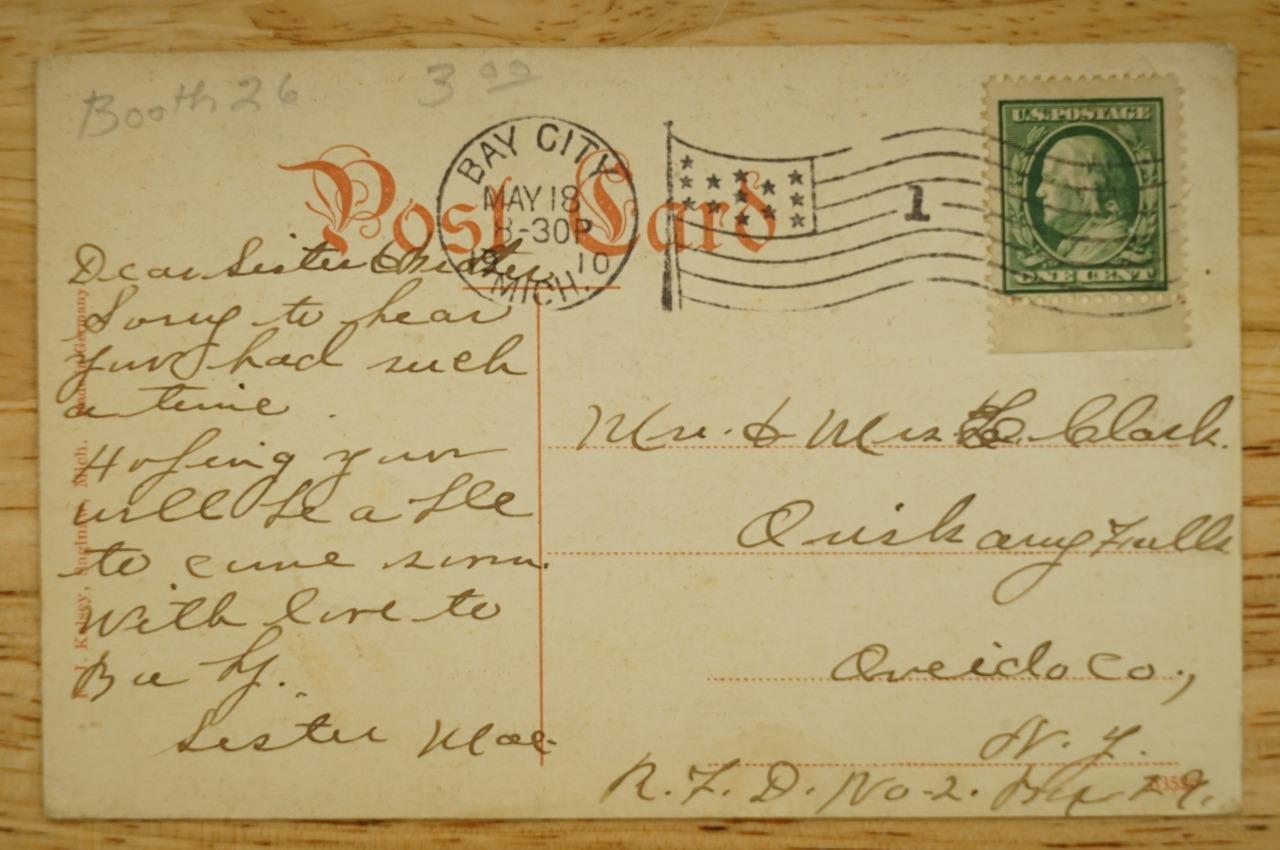 Booth 26
3 00
Post Card
BAY CITY
MAY 18
8-30P
19 10
MICH.
1
U.S. POSTAGE
ONE CENT
Dear Sister
Sorry to hear
you had such
a time.
Hoping you
will be able
to come soon.
With love to
Sister Mae
Mr. & Mrs Clark.
Oriskany Falls
Oneida Co.,
N. Y.
R. F. D. No-2.
J. Kelsey, Saginaw, Mich. Made in Germany